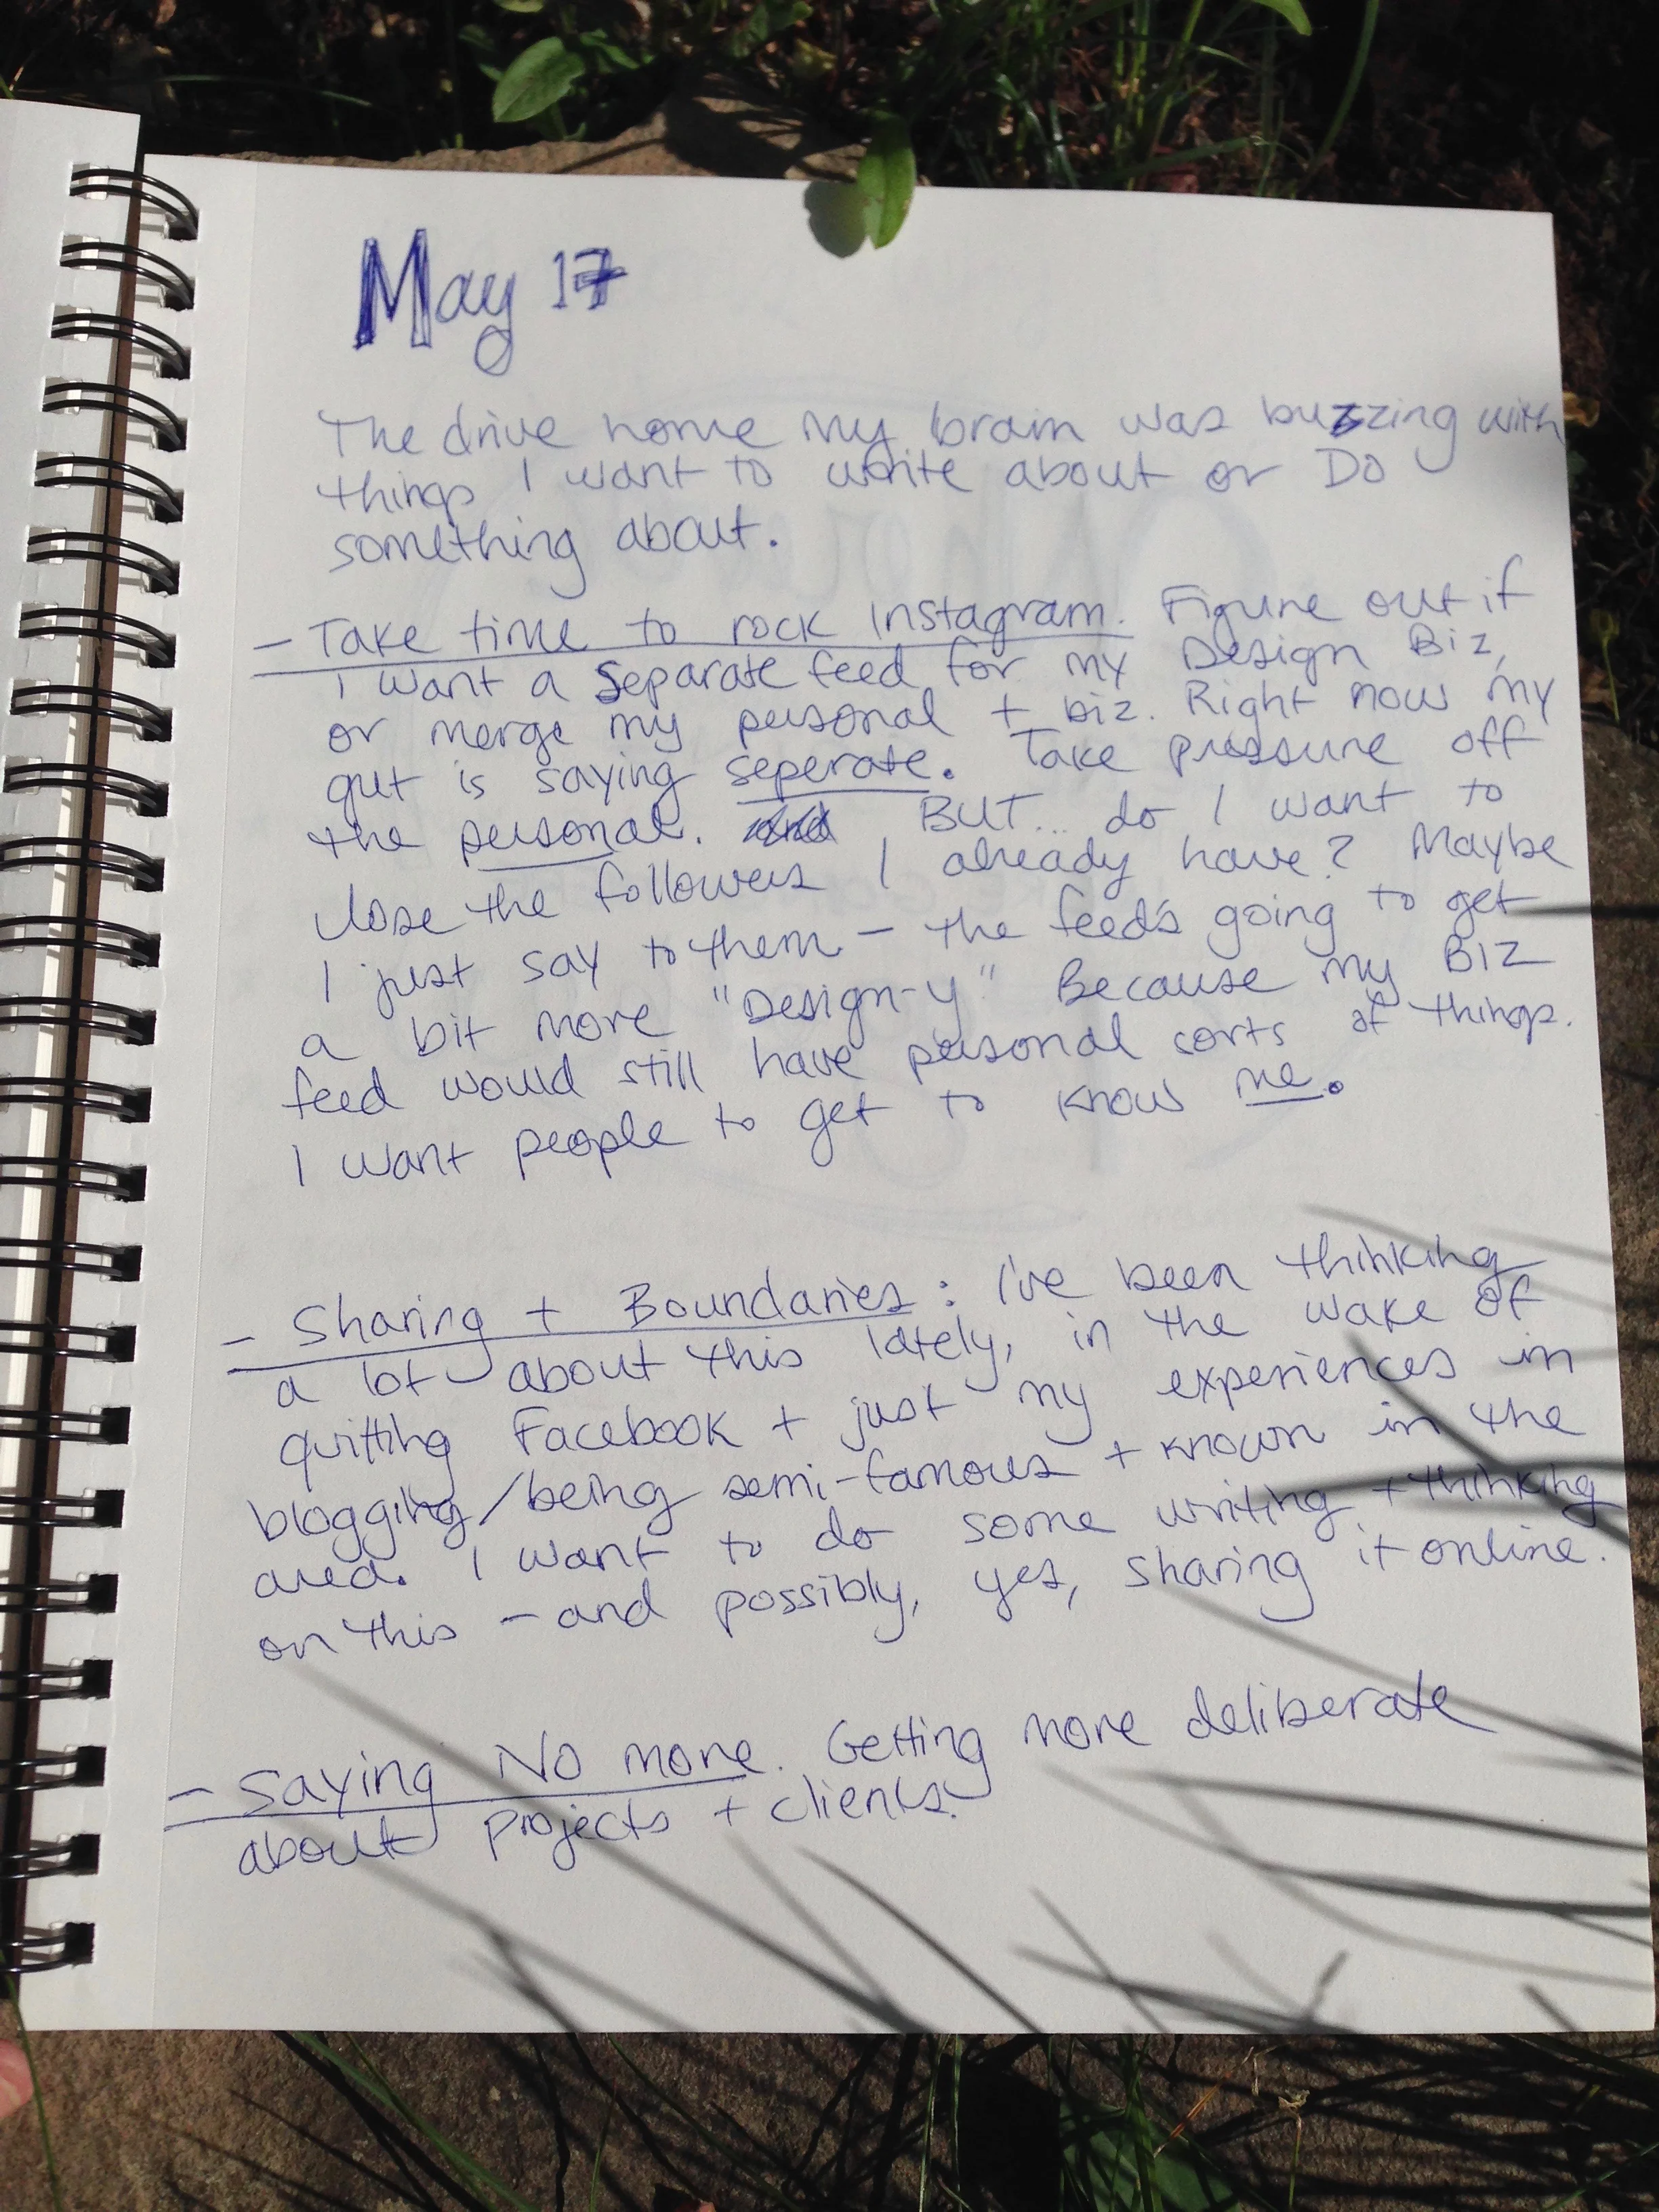 May 17
The drive home my brain was buzzing with
things I want to write about or DO
something about.
- Take time to rock Instagram. Figure out if
I want a separate feed for my Design Biz,
or merge my personal + biz. Right now my
gut is saying seperate. Take pressure off
the personal. and BUT... do I want to
lose the followers I already have? Maybe
I just say to them - the feed's going to get
a bit more "Design-y" Because my BIZ
feed would still have personal sorts of things.
I want people to get to know me.
- Sharing + Boundaries: I've been thinking
a lot about this lately, in the wake of
quitting Facebook + just my experiences in
blogging/being semi-famous + known in the
area. I want to do some writing + thinking
on this - and possibly, yes, sharing it online.
- Saying No more. Getting more deliberate
about projects + clients.